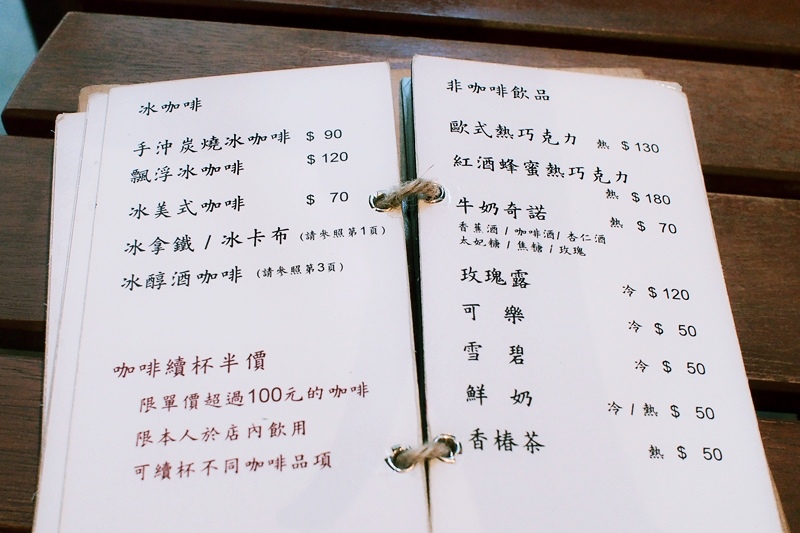 冰咖啡
手沖炭燒冰咖啡 $ 90
飄浮冰咖啡 $ 120
冰美式咖啡 $ 70
冰拿鐵 / 冰卡布 (請參照第1頁)
冰醇酒咖啡 (請參照第3頁)
咖啡續杯半價
限單價超過100元的咖啡
限本人於店內飲用
可續杯不同咖啡品項
非咖啡飲品
歐式熱巧克力 熱 $ 130
紅酒蜂蜜熱巧克力
熱 $ 180
牛奶奇諾 熱 $ 70
香蕉酒 / 咖啡酒 / 杏仁酒
太妃糖 / 焦糖 / 玫瑰
玫瑰露 冷 $ 120
可 樂 冷 $ 50
雪 碧 冷 $ 50
鮮 奶 冷 / 熱 $ 50
香椿茶 熱 $ 50